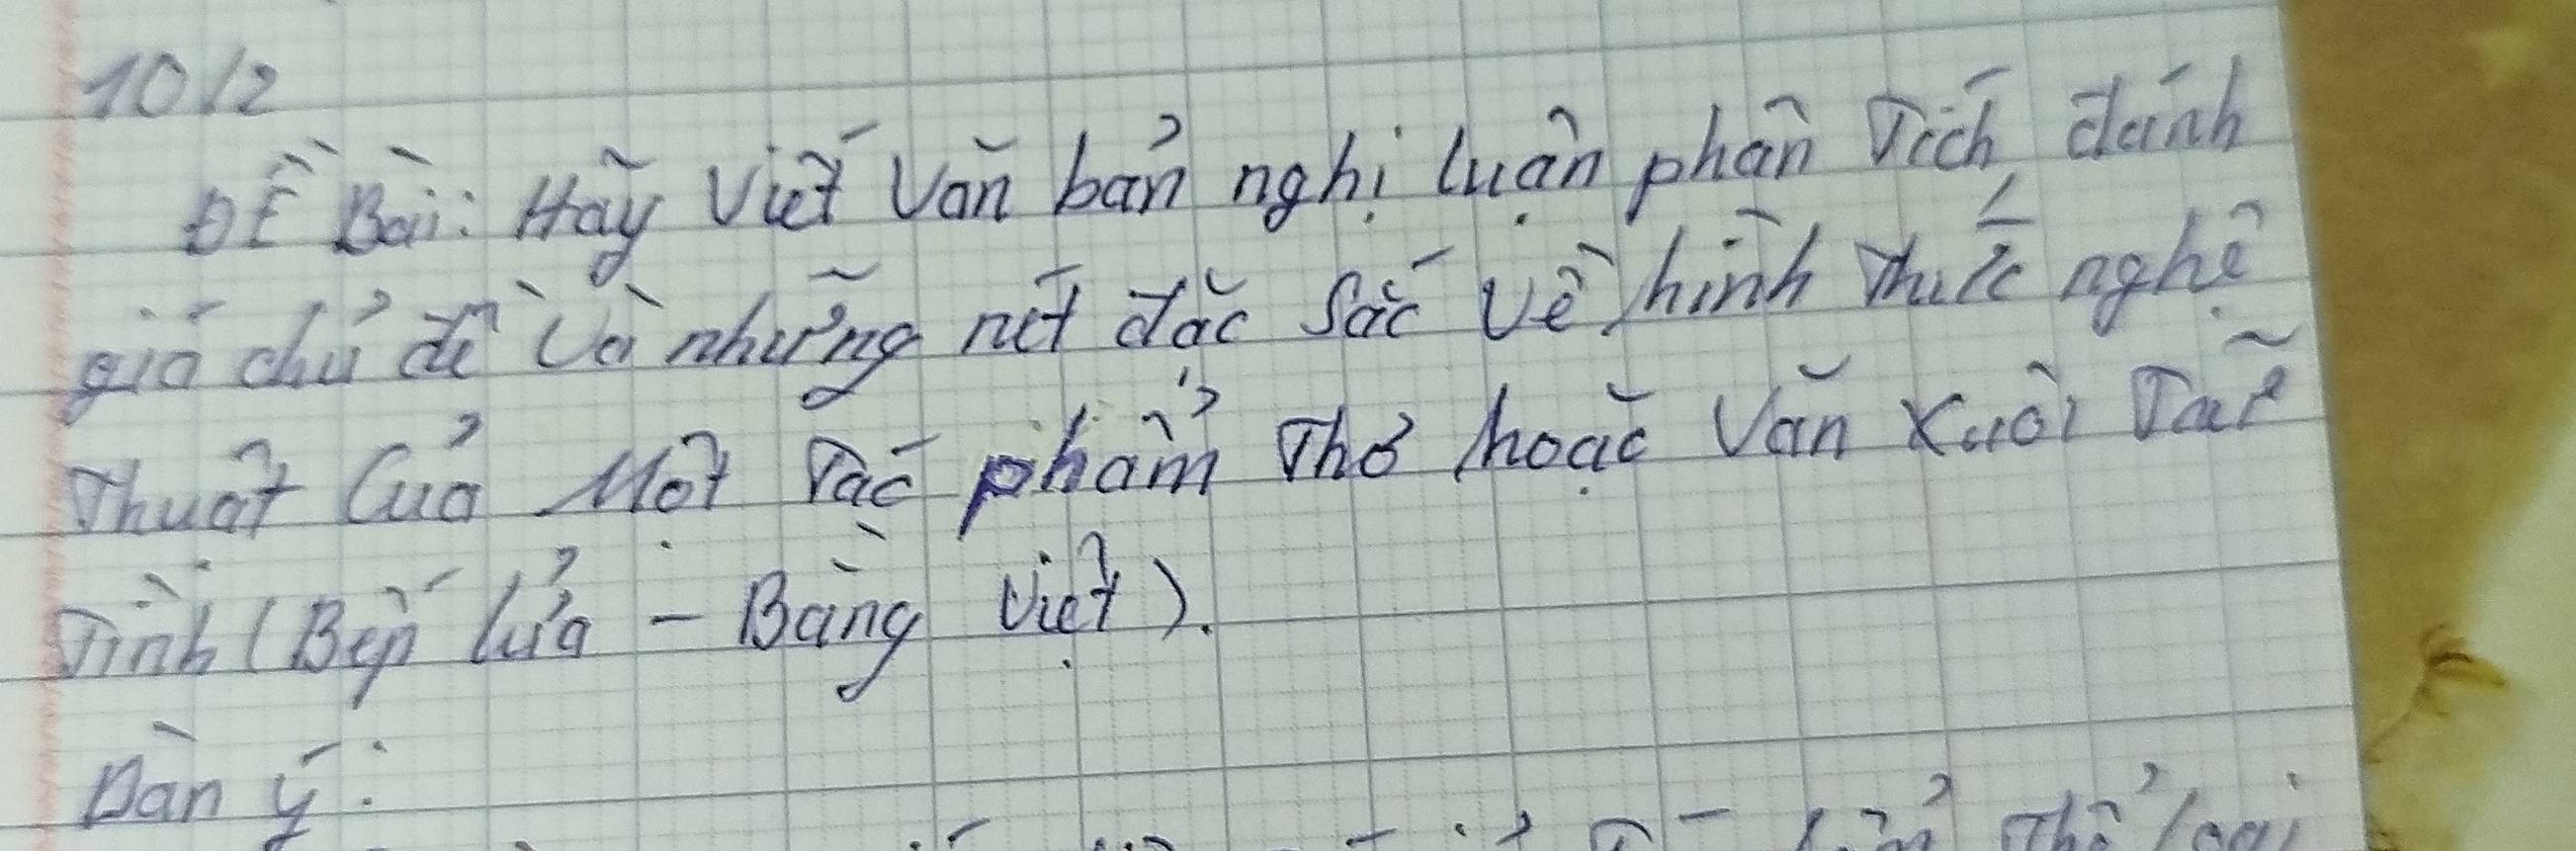 10/2
Đề Bài: Hãy viết văn bản nghị luận phân Tích, đánh
giá chủ đề và những nét đặc sắc về hình Thức nghệ
Thuật Của Một Tác phẩm Thơ hoặc Văn xuôi Trữ
Tình (Bếp lửa - Bằng Việt).
Dàn ý:
Thể loại